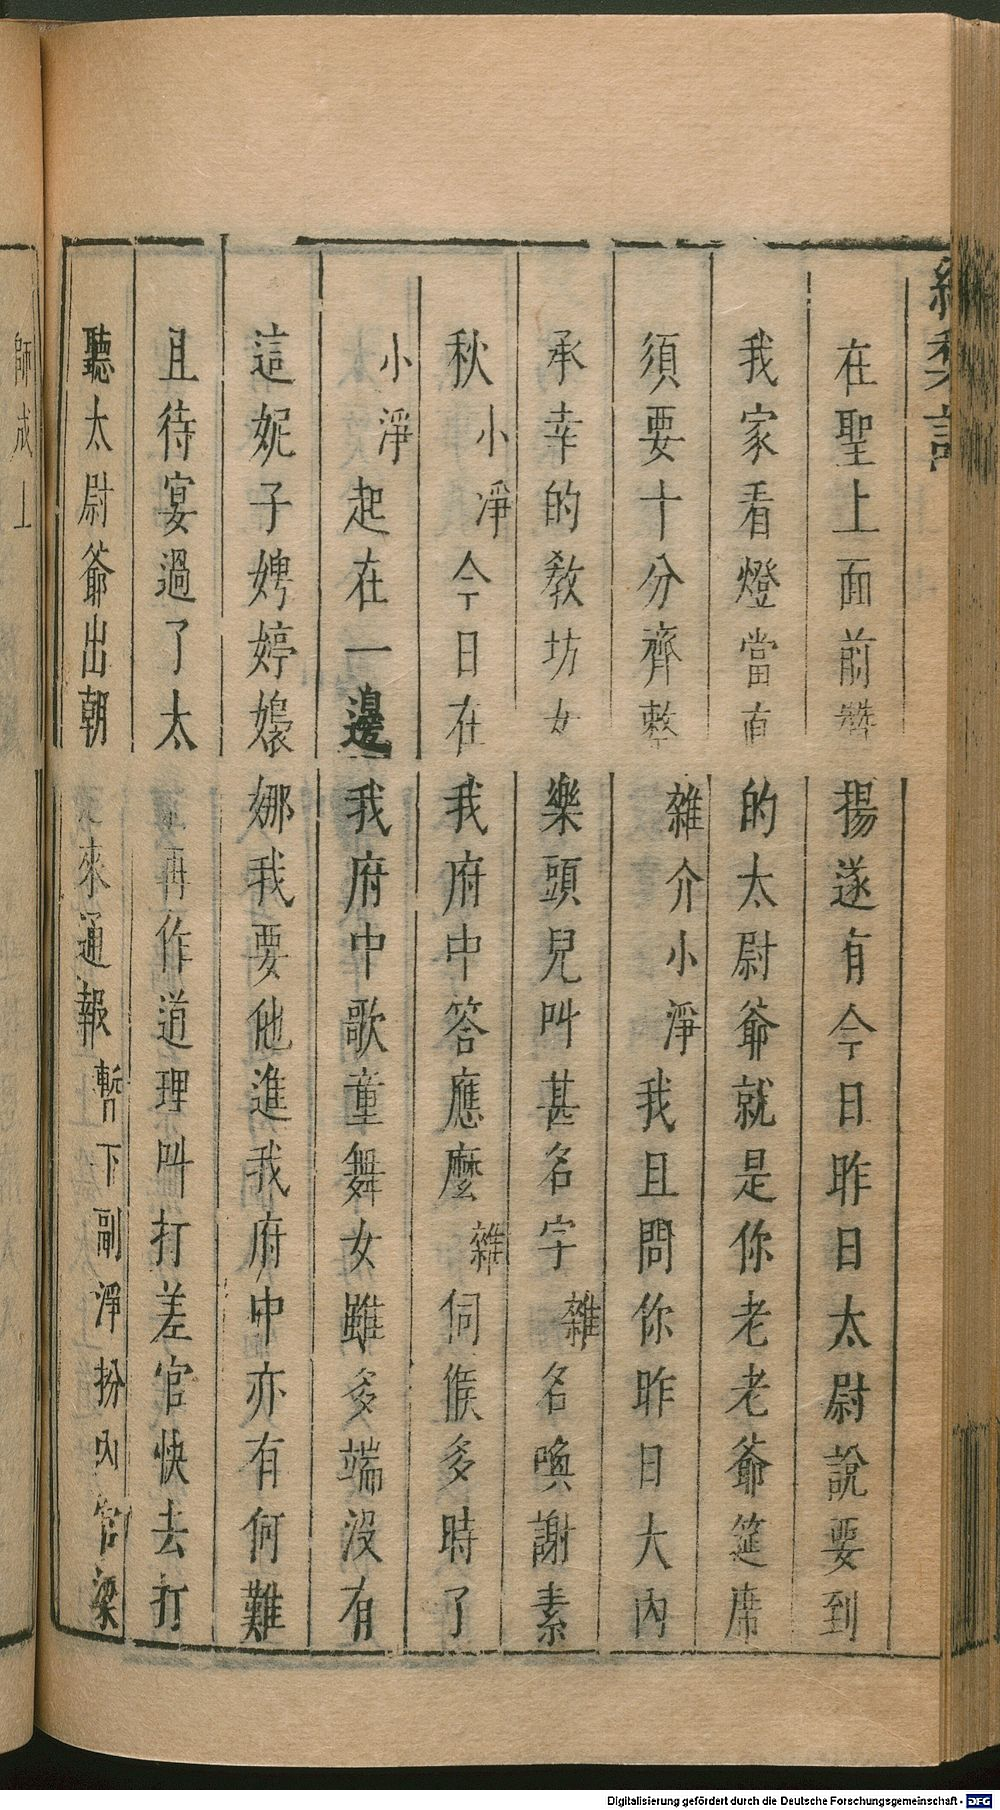 紅梨記
在聖上面前贊揚遂有今日昨日太尉說要到
我家看燈當直的太尉爺就是你老老爺筵席
須要十分齊整雜介小淨我且問你昨日大內
承幸的教坊女樂頭兒叫甚名字雜名喚謝素
秋小淨今日在我府中答應麼雜伺候多時了
小淨起在一邊我府中歌童舞女雖多端沒有
這妮子娉婷嬝娜我要他進我府中亦有何難
且待宴過了太再作道理叫打差官快去打
聽太尉爺出朝來通報暫下副淨扮內官梁
師成上
Digitalisierung gefördert durch die Deutsche Forschungsgemeinschaft - DFG